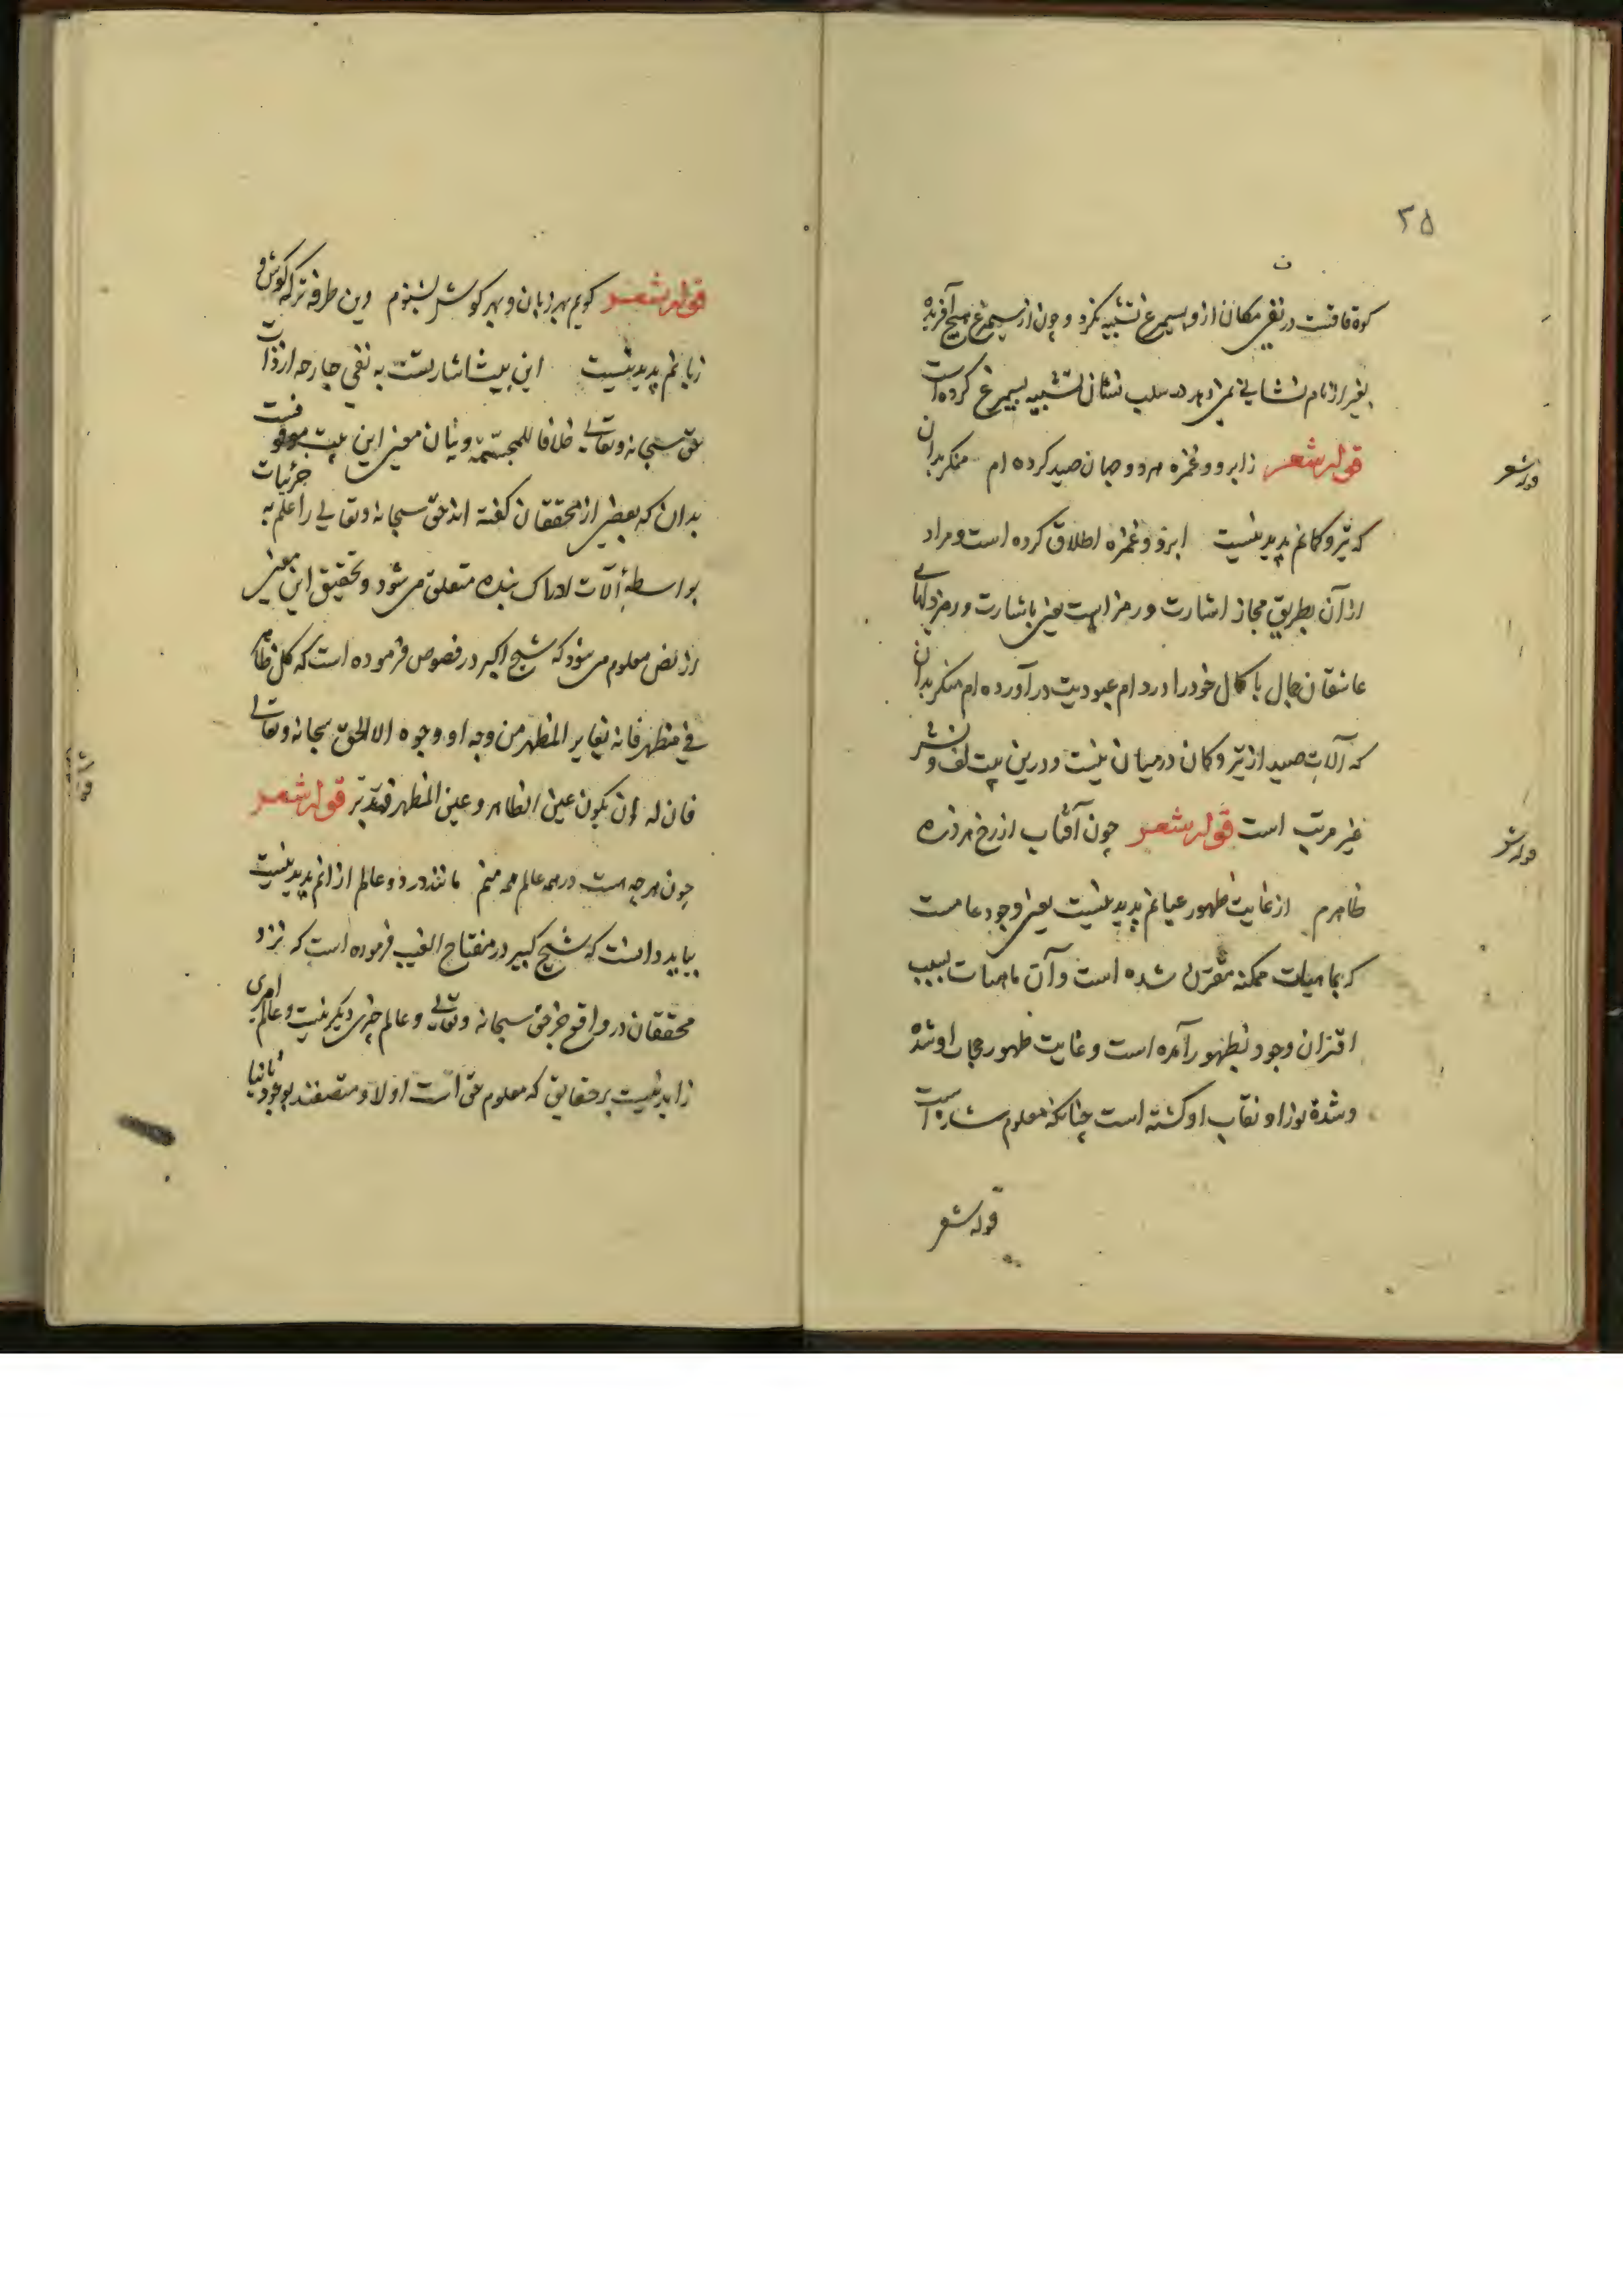 ۲۵
کوه قافست در نفی مکان ازو بسیمرغ تشبیه نکرد و چون از سیمرغ هیچ آفریده
بغیر از نام نشانی نمی دهد در سلب نشان تشبیه بسیمرغ کرده است
قوله شعر زابرو و غمزه هر دو جهان صید کرده ام منکر بدان
که تیر و کمانم پدید نیست ابرو و غمزه اطلاق کرده است و مراد
از آن بطریق مجاز اشارت و رمز است یعنی باشارت و رمز دلهای
عاشقان جمال با کمال خود را در دام عبودیت در آورده ام منکر بدان
که آلات صید از تیر و کمان درمیان نیست و درین بیت لف و نشر
غیر مرتب است قوله شعر چون آفتاب از رخ هر ذره
ظاهرم از غایت ظهور عیانم پدید نیست یعنی وجود عامست
که بماهیات ممکنه مقترن شده است و آن ماهیات بسبب
اقتران وجود بظهور آمده است و غایت ظهور حجاب او شده
و شدة نور او نقاب او کشته است چنانکه معلوم شده است
قوله شعر
قوله شعر
قوله شعر
قوله شعر کویم بهر زبان و بهر کوش بشنوم وین طرفه تر که کوش و
زبانم پدید نیست این بیت اشارتست به نفی جارحه از ذات
حق سبحانه و تعالی خلافا للمجسمة و بیان معنی این بیت موقوفست
بدان که بعضی از محققان کفته اند حق سبحانه و تعالی را علم به جزئیات
بواسطهٔ آلات ادراک بنده متعلق می شود و تحقیق این معنی
از نص معلوم می شود که شیخ اکبر در فصوص فرموده است که کل ظاهر
فی مظهر فانه یغایر المظهر من وجه او وجوه الا الحق سبحانه و تعالی
فان له ان یکون عین الظاهر و عین المظهر فتدبر قوله شعر
چون هرچه هست در همه عالم همه منم مانند در دو عالم از انم پدید نیست
بباید دانست که شیخ کبیر در مفتاح الغیب فرموده است که نزد
محققان در واقع جز حق سبحانه و تعالی و عالم چیزی دیکر نیست و عالم امری
زاید نیست بر حقایق که معلوم حق است اولا و متصفند بوجود ثانیا